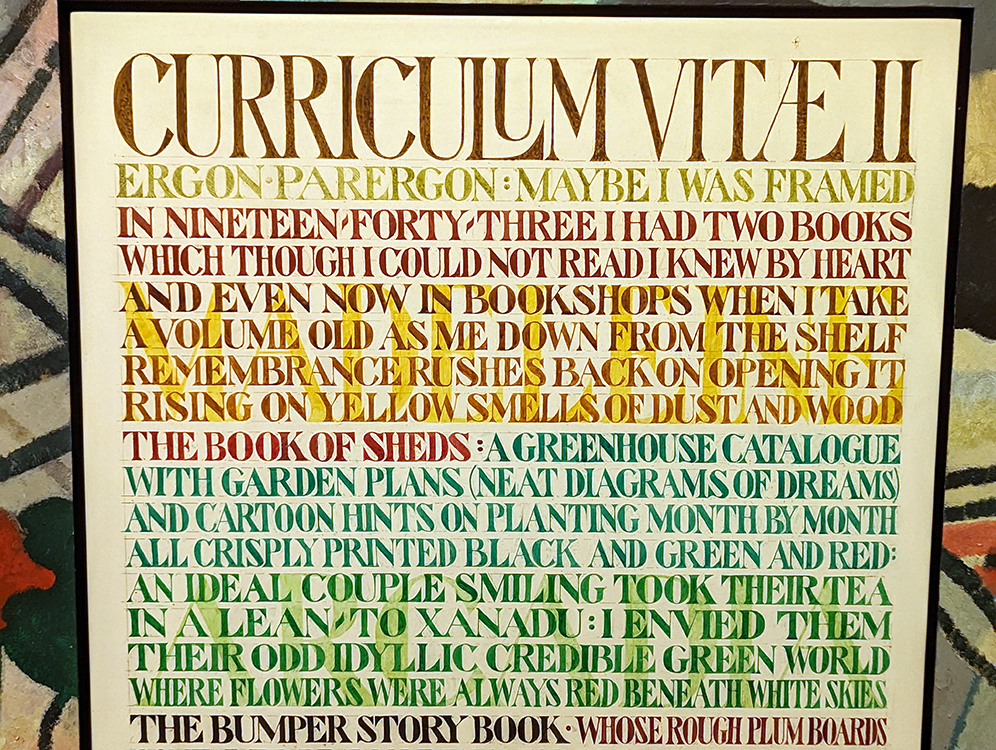 CURRICULUM VITÆ II
ERGON·PARERGON:MAYBE I WAS FRAMED
IN NINETEEN-FORTY-THREE I HAD TWO BOOKS
WHICH THOUGH I COULD NOT READ I KNEW BY HEART
AND EVEN NOW IN BOOKSHOPS WHEN I TAKE
A VOLUME OLD AS ME DOWN FROM THE SHELF
REMEMBRANCE RUSHES BACK ON OPENING IT
RISING ON YELLOW SMELLS OF DUST AND WOOD
THE BOOK OF SHEDS:A GREENHOUSE CATALOGUE
WITH GARDEN PLANS (NEAT DIAGRAMS OF DREAMS)
AND CARTOON HINTS ON PLANTING MONTH BY MONTH
ALL CRISPLY PRINTED BLACK AND GREEN AND RED:
AN IDEAL COUPLE SMILING TOOK THEIR TEA
IN A LEAN-TO XANADU:I ENVIED THEM
THEIR ODD IDYLLIC CREDIBLE GREEN WORLD
WHERE FLOWERS WERE ALWAYS RED BENEATH WHITE SKIES
THE BUMPER STORY BOOK·WHOSE ROUGH PLUM BOARDS